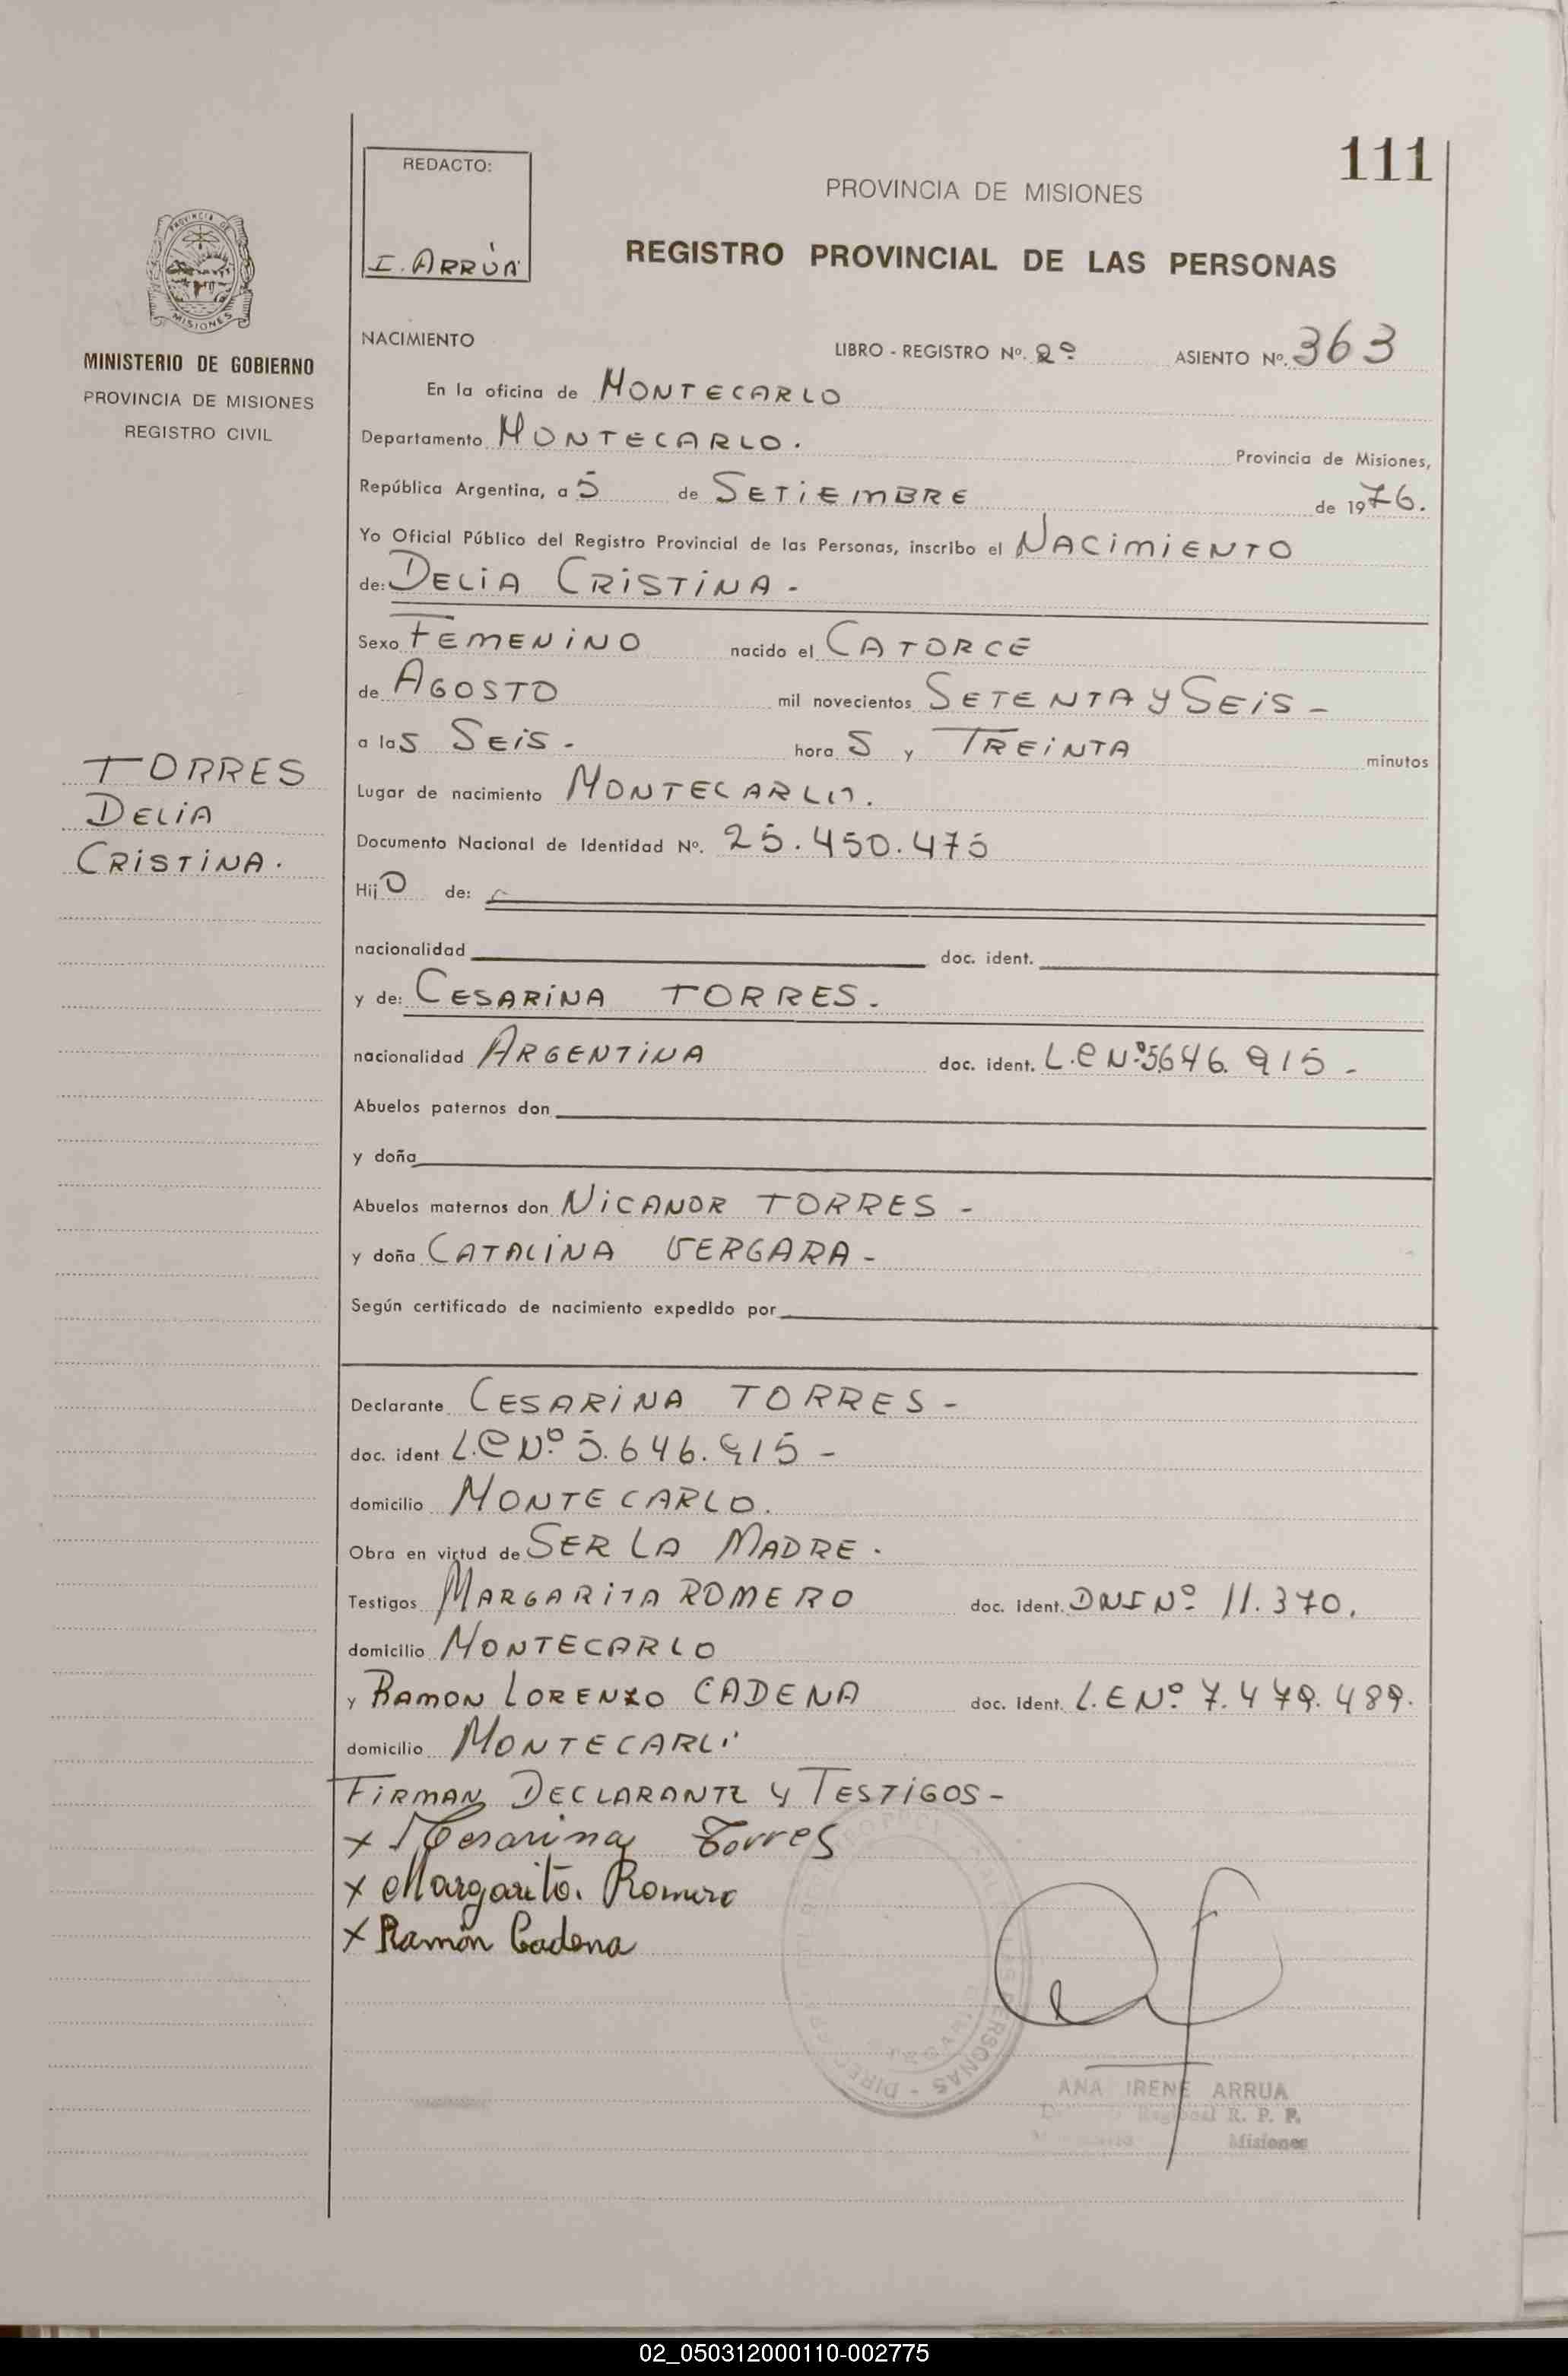 111
REDACTO:
I. ARRÚA
PROVINCIA DE MISIONES
REGISTRO PROVINCIAL DE LAS PERSONAS
PROVINCIA DE
MISIONES
MINISTERIO DE GOBIERNO
PROVINCIA DE MISIONES
REGISTRO CIVIL
NACIMIENTO LIBRO - REGISTRO Nº. 2º ASIENTO Nº. 363
En la oficina de MONTECARLO
Departamento MONTECARLO. Provincia de Misiones,
República Argentina, a 5 de SETIEMBRE de 1976.
Yo Oficial Público del Registro Provincial de las Personas, inscribo el NACIMIENTO
de: DELIA CRISTINA -
Sexo FEMENINO nacido el CATORCE
de AGOSTO mil novecientos SETENTA Y SEIS -
a las SEIS - hora S y TREINTA minutos
Lugar de nacimiento MONTECARLO.
Documento Nacional de Identidad Nº. 25.450.475
TORRES
DELIA
CRISTINA.
Hij O de:
nacionalidad doc. ident.
y de: CESARINA TORRES -
nacionalidad ARGENTINA doc. ident. L.C Nº 5646.915 -
Abuelos paternos don
y doña
Abuelos maternos don NICANOR TORRES -
y doña CATALINA VERGARA -
Según certificado de nacimiento expedido por
Declarante CESARINA TORRES -
doc. ident L.C Nº 5.646.915 -
domicilio MONTECARLO.
Obra en virtud de SER LA MADRE .
Testigos MARGARITA ROMERO doc. ident. DNI Nº 11.370.
domicilio MONTECARLO
y RAMON LORENZO CADENA doc. ident. L.E Nº 7.479.489.
domicilio MONTECARLO
FIRMAN DECLARANTE Y TESTIGOS -
x Cesarina Torres
x Margarita Romero
x Ramón Cadena
PERSONAS - DIREC
ANA IRENE ARRUA
Regional R. P. P.
Misiones
02_050312000110-002775